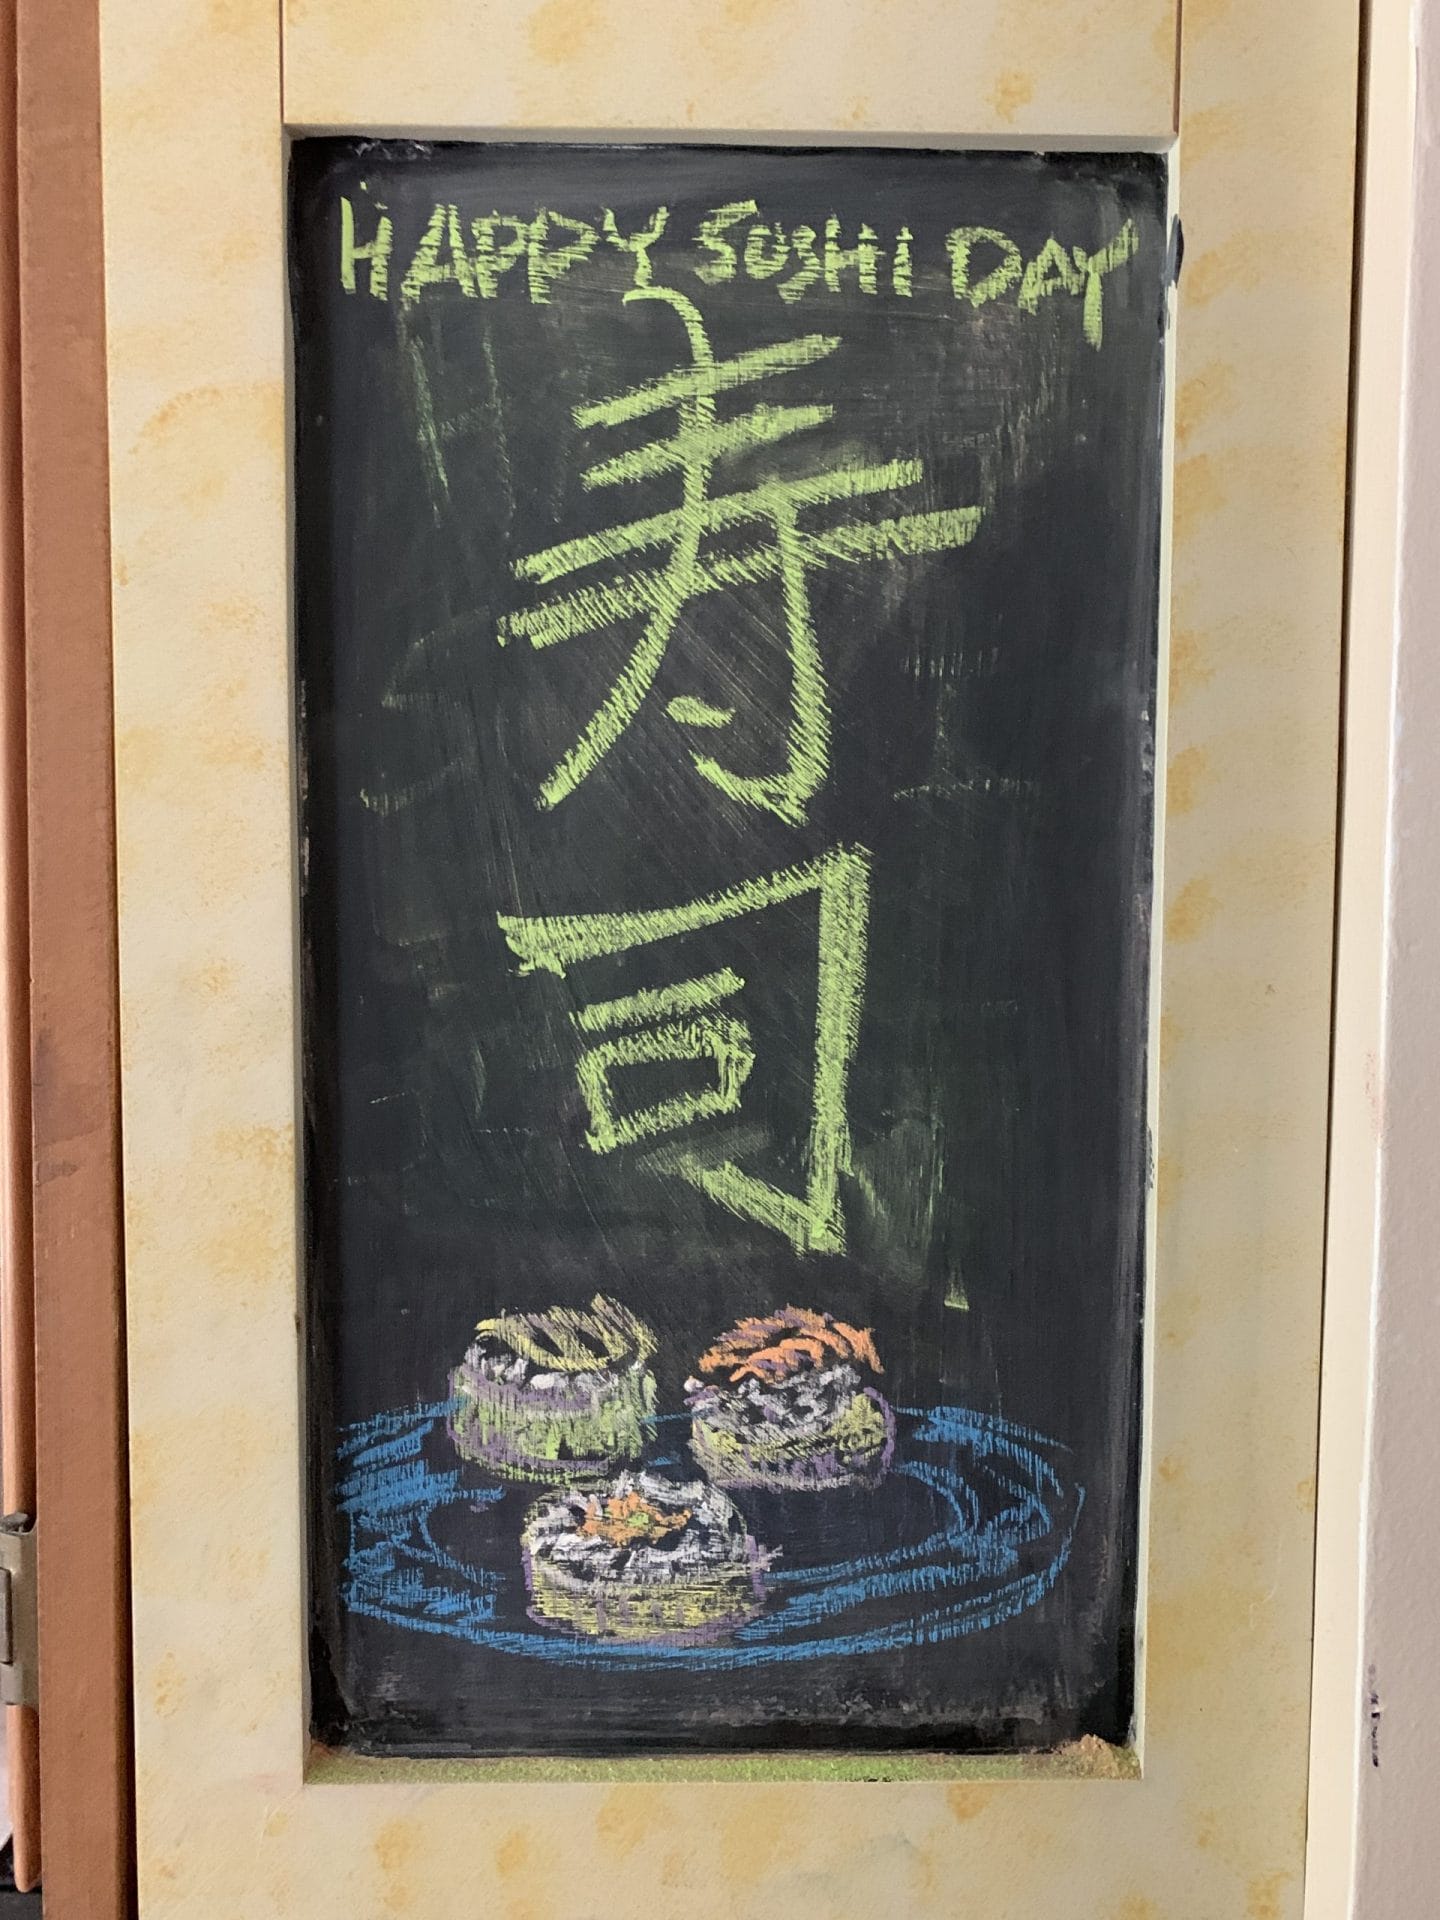 HAPPY SUSHI DAY
寿司